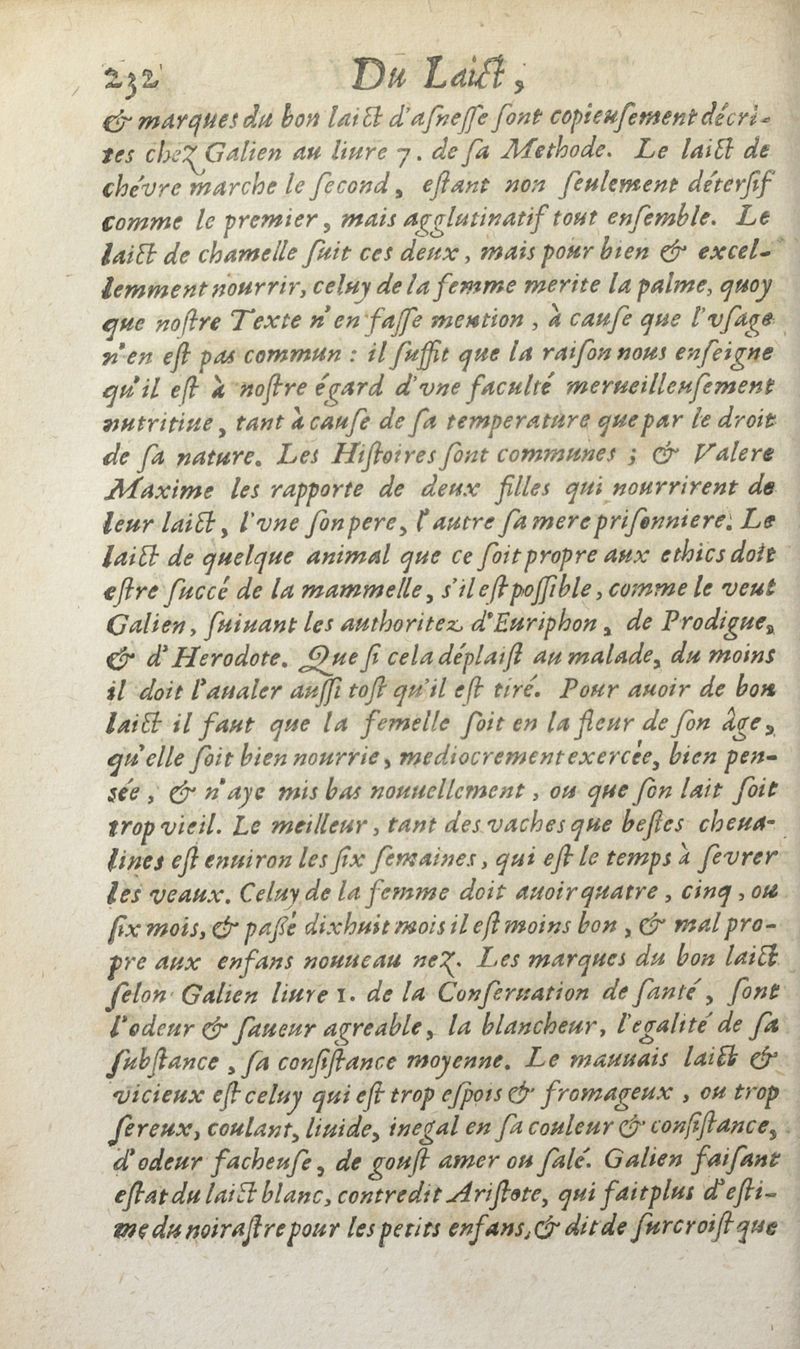 232 Du Laict,
& marques du bon laict d'asnesse sont copieusement décri-
tes chez Galien au liure 7. de sa Methode. Le laict de
chévre marche le second, estant non seulement détersif
comme le premier, mais agglutinatif tout ensemble. Le
laict de chamelle suit ces deux, mais pour bien & excel-
lemment nourrir, celuy de la femme merite la palme, quoy
que nostre Texte n'en fasse mention, à cause que l'vsage
n'en est pas commun : il suffit que la raison nous enseigne
qu'il est à nostre égard d'vne faculté merueilleusement
nutritiue, tant à cause de sa temperature que par le droit
de sa nature. Les Histoires sont communes ; & Valere
Maxime les rapporte de deux filles qui nourrirent de
leur laict, l'vne son pere, l'autre sa mere prisonniere. Le
laict de quelque animal que ce soit propre aux ethics doit
estre succé de la mammelle, s'il est possible, comme le veut
Galien, suiuant les authoritez d'Euriphon, de Prodigue,
& d'Herodote. Que si cela déplaist au malade, du moins
il doit l'aualer aussi tost qu'il est tiré. Pour auoir de bon
laict il faut que la femelle soit en la fleur de son âge,
qu'elle soit bien nourrie, mediocrement exercée, bien pen-
sée, & n'aye mis bas nouuellement, ou que son lait soit
trop vieil. Le meilleur, tant des vaches que bestes cheua-
lines est enuiron les six semaines, qui est le temps à sevrer
les veaux. Celuy de la femme doit auoir quatre, cinq, ou
six mois, & passé dixhuit mois il est moins bon, & mal pro-
pre aux enfans nouueau nez. Les marques du bon laict
selon Galien liure 1. de la Conseruation de santé, sont
l'odeur & saueur agreable, la blancheur, l'egalité de sa
substance, sa consistance moyenne. Le mauuais laict &
vicieux est celuy qui est trop espois & fromageux, ou trop
sereux, coulant, liuide, inegal en sa couleur & consistance,
d'odeur facheuse, de goust amer ou salé. Galien faisant
estat du laict blanc, contredit Aristote, qui fait plus d'esti-
me du noirastre pour les petits enfans, & dit de surcroist que